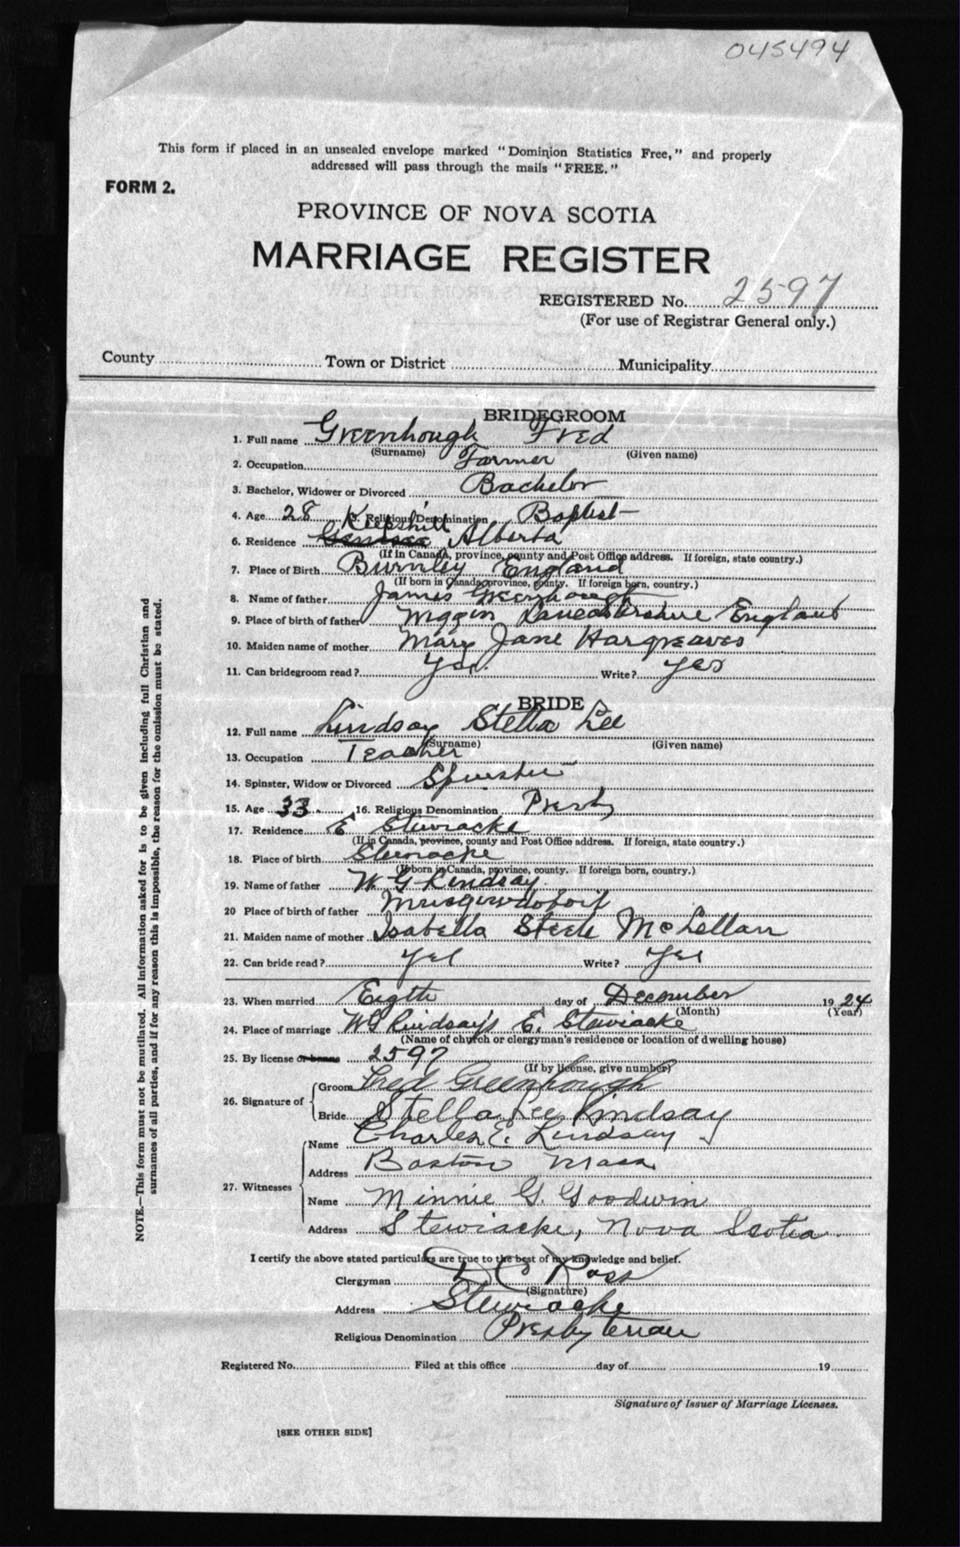 045494
This form if placed in an unsealed envelope marked "Dominion Statistics Free," and properly
addressed will pass through the mails "FREE."
FORM 2.
PROVINCE OF NOVA SCOTIA
MARRIAGE REGISTER
REGISTERED No. 2597
(For use of Registrar General only.)
County Town or District Municipality
BRIDEGROOM
1. Full name Greenhough Fred
(Surname) (Given name)
2. Occupation Farmer
3. Bachelor, Widower or Divorced Bachelor
4. Age 28 5. Religious Denomination Baptist
6. Residence Alberta
(If in Canada, province, county and Post Office address. If foreign, state country.)
7. Place of Birth Burnley England
(If born in Canada province, county. If foreign born, country.)
8. Name of father James Greenhough
9. Place of birth of father Wiggin Lancashire England
10. Maiden name of mother Mary Jane Hargreaves
11. Can bridegroom read? Yes Write? Yes
BRIDE
12. Full name Lindsay Stella Lee
(Surname) (Given name)
13. Occupation Teacher
14. Spinster, Widow or Divorced Spinster
15. Age 33 16. Religious Denomination Presby
17. Residence E Stewiacke
(If in Canada, province, county and Post Office address. If foreign, state country.)
18. Place of birth Stewiacke
(If born in Canada, province, county. If foreign born, country.)
19. Name of father W. G Lindsay
20 Place of birth of father
21. Maiden name of mother Isabella Steele McLellan
22. Can bride read? Yes Write? Yes
23. When married Eigth day of December 1924
(Month) (Year)
24. Place of marriage W G Lindsays E. Stewiacke
(Name of church or clergyman's residence or location of dwelling house)
25. By license or banns 2597
(If by license, give number)
26. Signature of
Groom Fred Greenhough
Bride Stella Lee Lindsay
27. Witnesses
Name Charles E. Lindsay
Address Boston Mass
Name Minnie G. Goodwin
Address Stewiacke, Nova Scotia
I certify the above stated particulars are true to the best of my knowledge and belief.
Clergyman D C Ross
(Signature)
Address Stewiacke
Religious Denomination Presbyterian
Registered No. Filed at this office day of 19
Signature of Issuer of Marriage Licenses.
[SEE OTHER SIDE]
NOTE.—This form must not be mutilated. All information asked for is to be given including full Christian and
surnames of all parties, and if for any reason this is impossible, the reason for the omission must be stated.